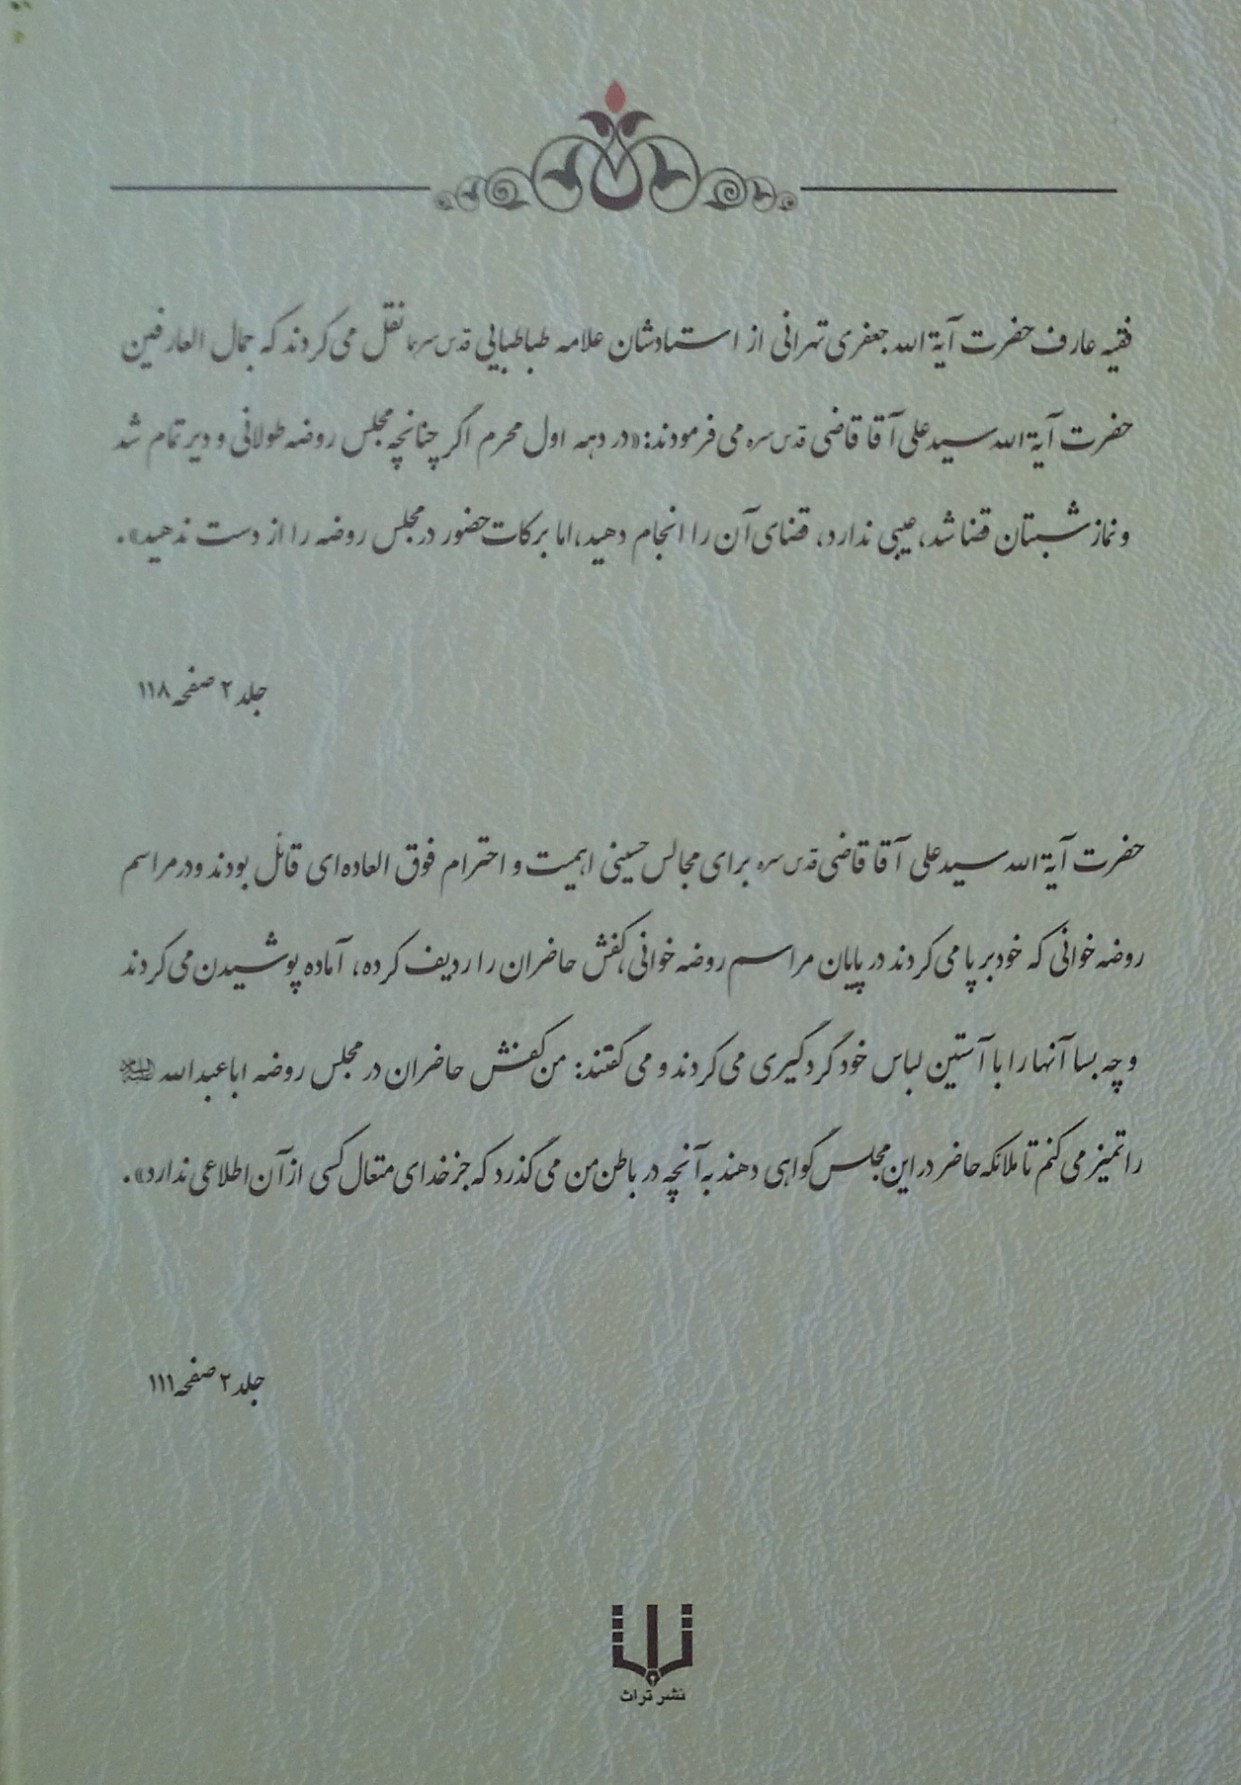 فقیه عارف حضرت آیة الله جعفری تهرانی از استادشان علامه طباطبایی قدس سرهما نقل می کردند که جمال العارفین
حضرت آیة الله سید علی آقا قاضی قدس سره می فرمودند: «در دهه اول محرم اگر چنانچه مجلس روضه طولانی و دیر تمام شد
و نماز شبتان قضا شد، عیبی ندارد، قضای آن را انجام دهید، اما برکات حضور در مجلس روضه را از دست ندهید».
جلد ۲ صفحه ۱۱۸
حضرت آیة الله سید علی آقا قاضی قدس سره برای مجالس حسینی اهمیت و احترام فوق العاده ای قائل بودند ودر مراسم
روضه خوانی که خود برپا می کردند در پایان مراسم روضه خوانی، کفش حاضران را ردیف کرده، آماده پوشیدن می کردند
و چه بسا آنها را با آستین لباس خود گردگیری می کردند و می گفتند: من کفش حاضران در مجلس روضه اباعبدالله علیه‌السلام
را تمیز می کنم تا ملائکه حاضر در این مجلس گواهی دهند به آنچه در باطن من می گذرد که جز خدای متعال کسی از آن اطلاعی ندارد».
جلد ۲ صفحه ۱۱۱
نشر تراث